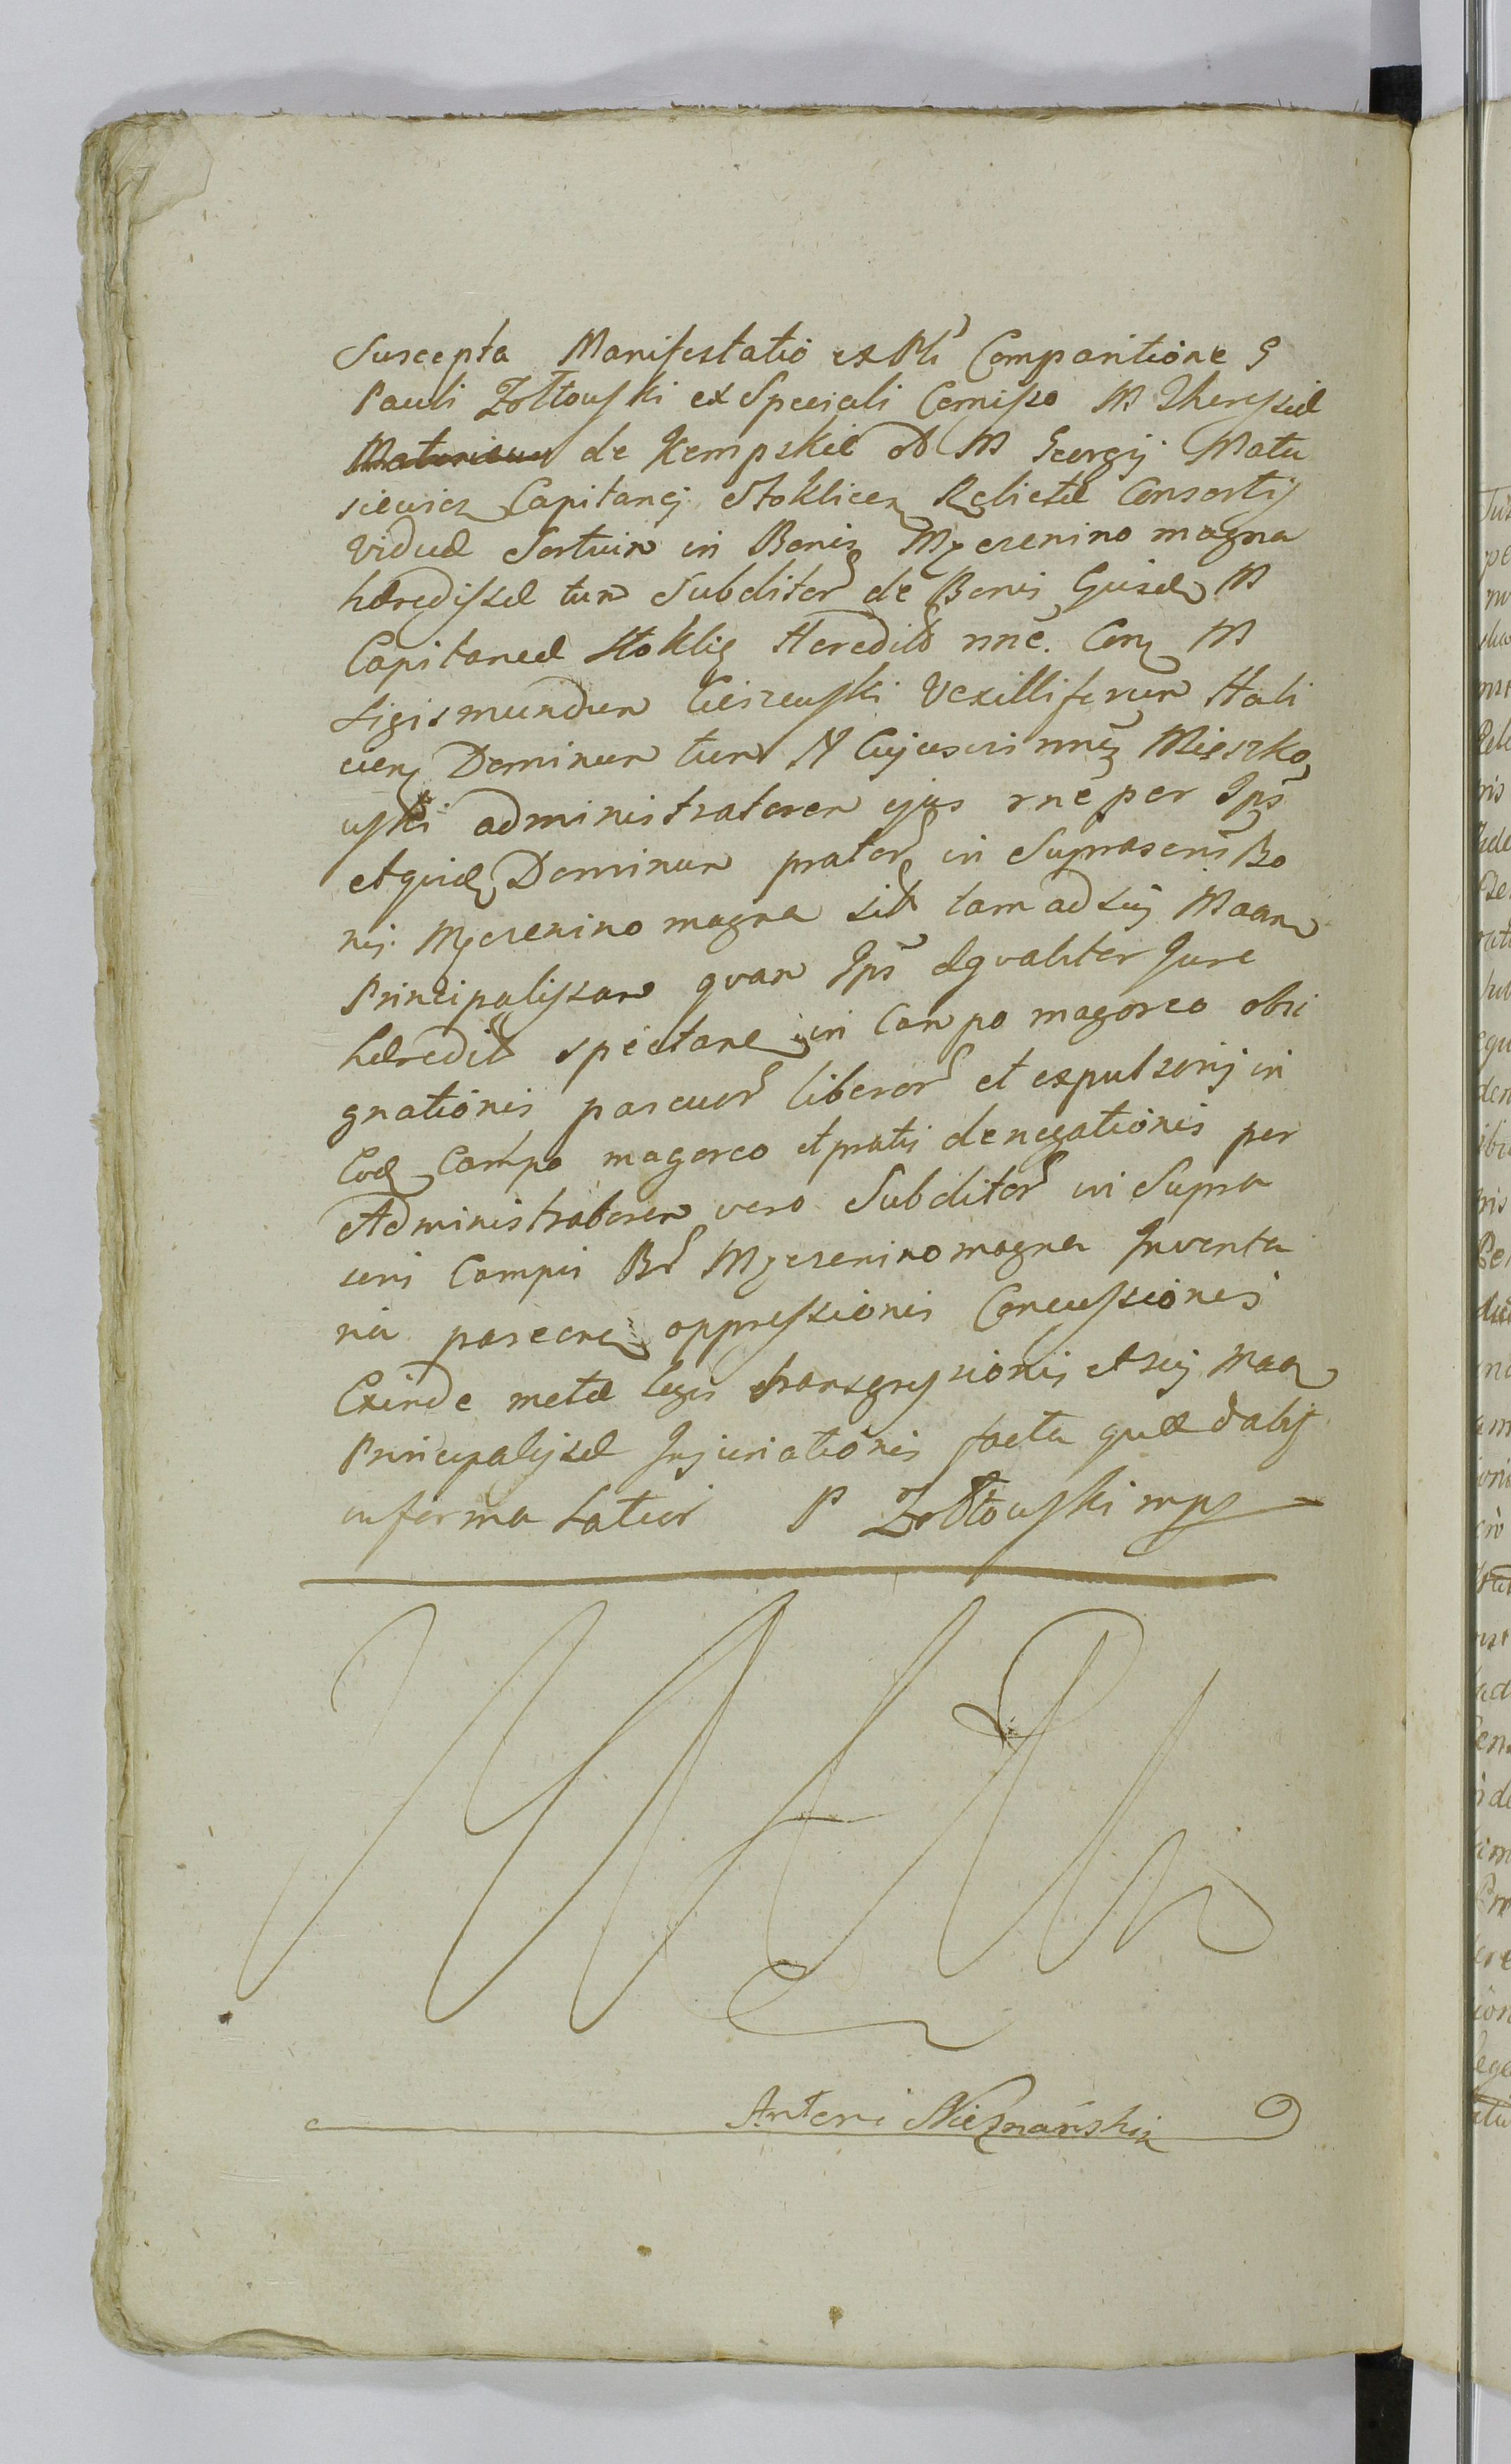 Suscepta Manifestatio ex Pbli Comparitione G
Pauli Zołtowski ex Speciali Comisso M Theressiæ
Matusiewi de Kempskie M Georgij Matu
siewicz Capitanej Stoklicen Relictæ Consortis
Viduæ Sortuin in Bonis Myszenino magna
hæredissæ tum Subditor de Bonis Ejusd M
Capitaneæ Stoklic Heredit nne. Con M
Sigismundum Cieszewski Vexilliferum Hali
cien Dominum tum N Cujusvis nnis Mieszko
wski administratorem ejus rne per Ips
et quid Dominum prator in Suprascris Bo
nis Myszenino magna sit tam ad suij Maam
Principalissam quam Ips æqvaliter Jure
hæredit spectane in Campo magoreo obsi
gnationis pascuor liberor et expulsionij in
Eod Campo magoreo et pratis denegationis per
Administratorem vero Subditor in Supra
scris Campis Br Myszenino magna Inventa
ria pascere oppressionis Concussionis
Exinde metæ legis transgressionis et suij Maa
Principalissæ Injuriationis facta quæ d alijs
in forma Latior P Zołtowski mpr
Antoni Nieznański